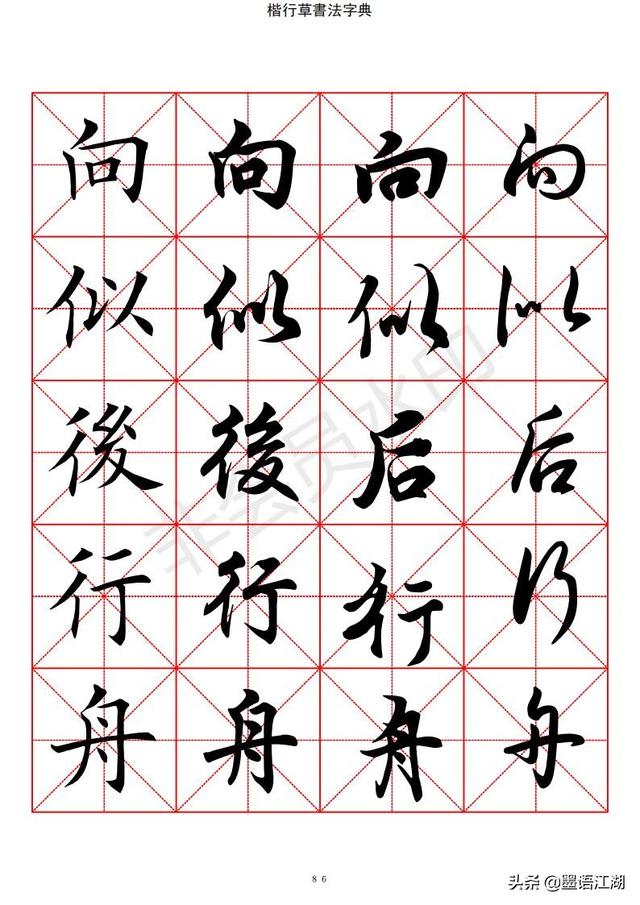 楷行草書法字典
向向向向
似似似似
後後后后
行行行行
舟舟舟舟
非会员水印
86
头条 @墨语江湖